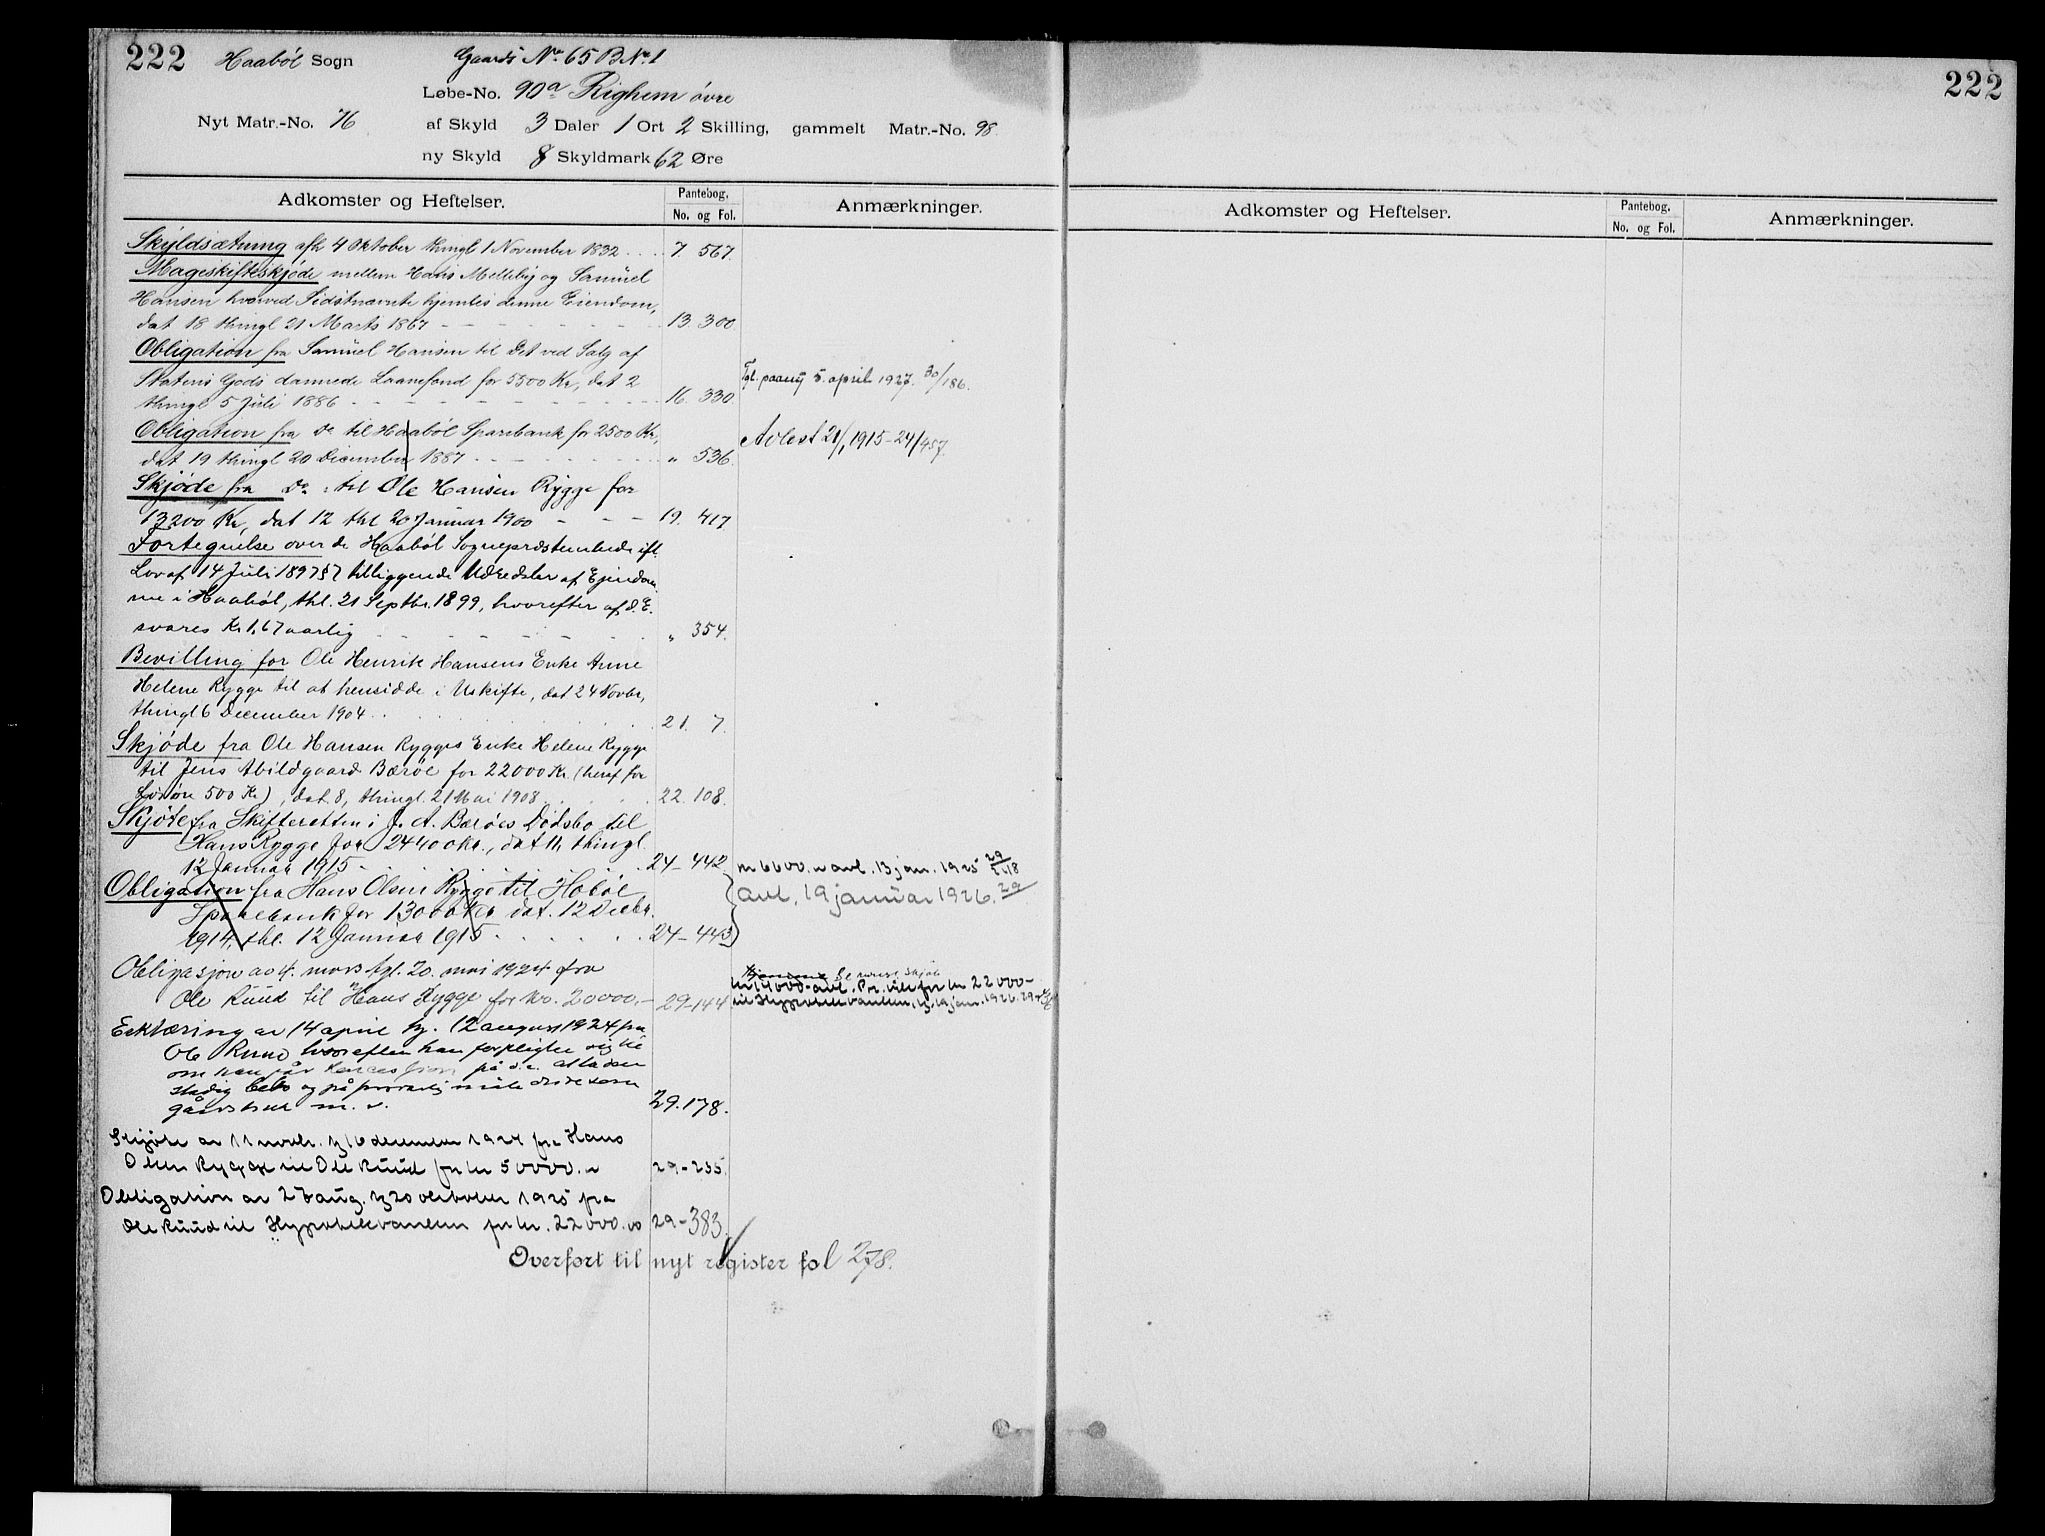 222 Haabøl Sogn Gaards No 65 B.No 1
Løbe-No. 90a Righem øvre
Nyt Matr.-No. 76 af Skyld 3 Daler 1 Ort 2 Skilling, gammelt Matr.-No. 98.
ny Skyld 8 Skyldmark 62 Øre
222
Adkomster og Heftelser. Pantebog. No. og Fol. Anmærkninger.
Adkomster og Heftelser. Pantebog. No. og Fol. Anmærkninger.
Skyldsætning afh 4 Oktober thingl 1 November 1832 7 567.
Mageskifteskjøde mellem Hans Melleby og Samuel
Hansen hvorved Sidstnævnte hjemles denne Eiendom,
dat 18 thingl 21 Marts 1867 13 300.
Obligation fra Samuel Hansen til det ved Salg af
Statens Gods dannede Laanefond for 5500 Kr, dat 2
thingl 5 Juli 1886 16. 330.
Tgl. paany 5. april 1927. 30/186.
Obligation fra Do til Haabøl Sparebank for 2500 Kr,
dat 19 thingl 20 December 1887 " 536.
Avlest 21/1 1915 - 24/457
Skjøde fra Do til Ole Hansen Rygge for
13200 Kr, dat 12 thl 20 Januar 1900 19. 417
Fortegnelse over de Haabøl Sognepræstembede ifl.
Lov af 14 Juli 1897 § 7 tilliggende Udredsler af Ejendom
me i Haabøl, thl. 21 Septbr. 1899, hvorefter af d. E.
svares Kr 1,67 aarlig " 354.
Bevilling for Ole Henrik Hansens Enke Anne
Helene Rygge til at hensidde i Uskifte, dat 24 Novbr,
thingl 6 December 1904 21. 7.
Skjøde fra Ole Hansen Rygges Enke Helene Rygge
til Jens Abildgaard Bærøe for 22000 Kr (heraf for
Løsøre 500 Kr), dat. 8, thingl. 21 Mai 1908 22. 108.
Skjøte fra Skifteretten i J. A. Bærøes Dødsbo til
Hans Rygge for 24400 Kr., dat 11, thingl.
12 Januar 1915 24-442
Obligation fra Hans Olsen Rygge til Hobøl
Sparebank for 13000 Kr. dat. 12 Decbr.
1914, thl. 12 Januar 1915 24-443
kr 6600. avl. 13 jan. 1925 29
avl. 19 januar 1926. 29
Obligasjon av 4. mars tgl. 20. mai 1924 fra
Ole Ruud til Hans Rygge for kr. 20000,- 29-144
kr 14000 avl. Pr. vike for kr 22000-
til Hypotekbanken, tgl. 19 jan. 1926. 29
Erklæring av 14 april tg. 12 august 1924 fra
Ole Ruud hvorefter han forpligter sig til
om han får koncession på d. e. at la den
stadig bebo og på forsvarlig måte drive som
gårdsbruk m. v. 29.178.
Skjøte av 11 novbr. tg 16 december 1924 fra Hans
Olsen Rygge til Ole Ruud for kr 50000.- 29-235
Obligation av 27 aug. tg 20 oktober 1925 fra
Ole Ruud til Hypotekbanken for kr. 22000.00 29-383.
Overført til nyt register fol 278.